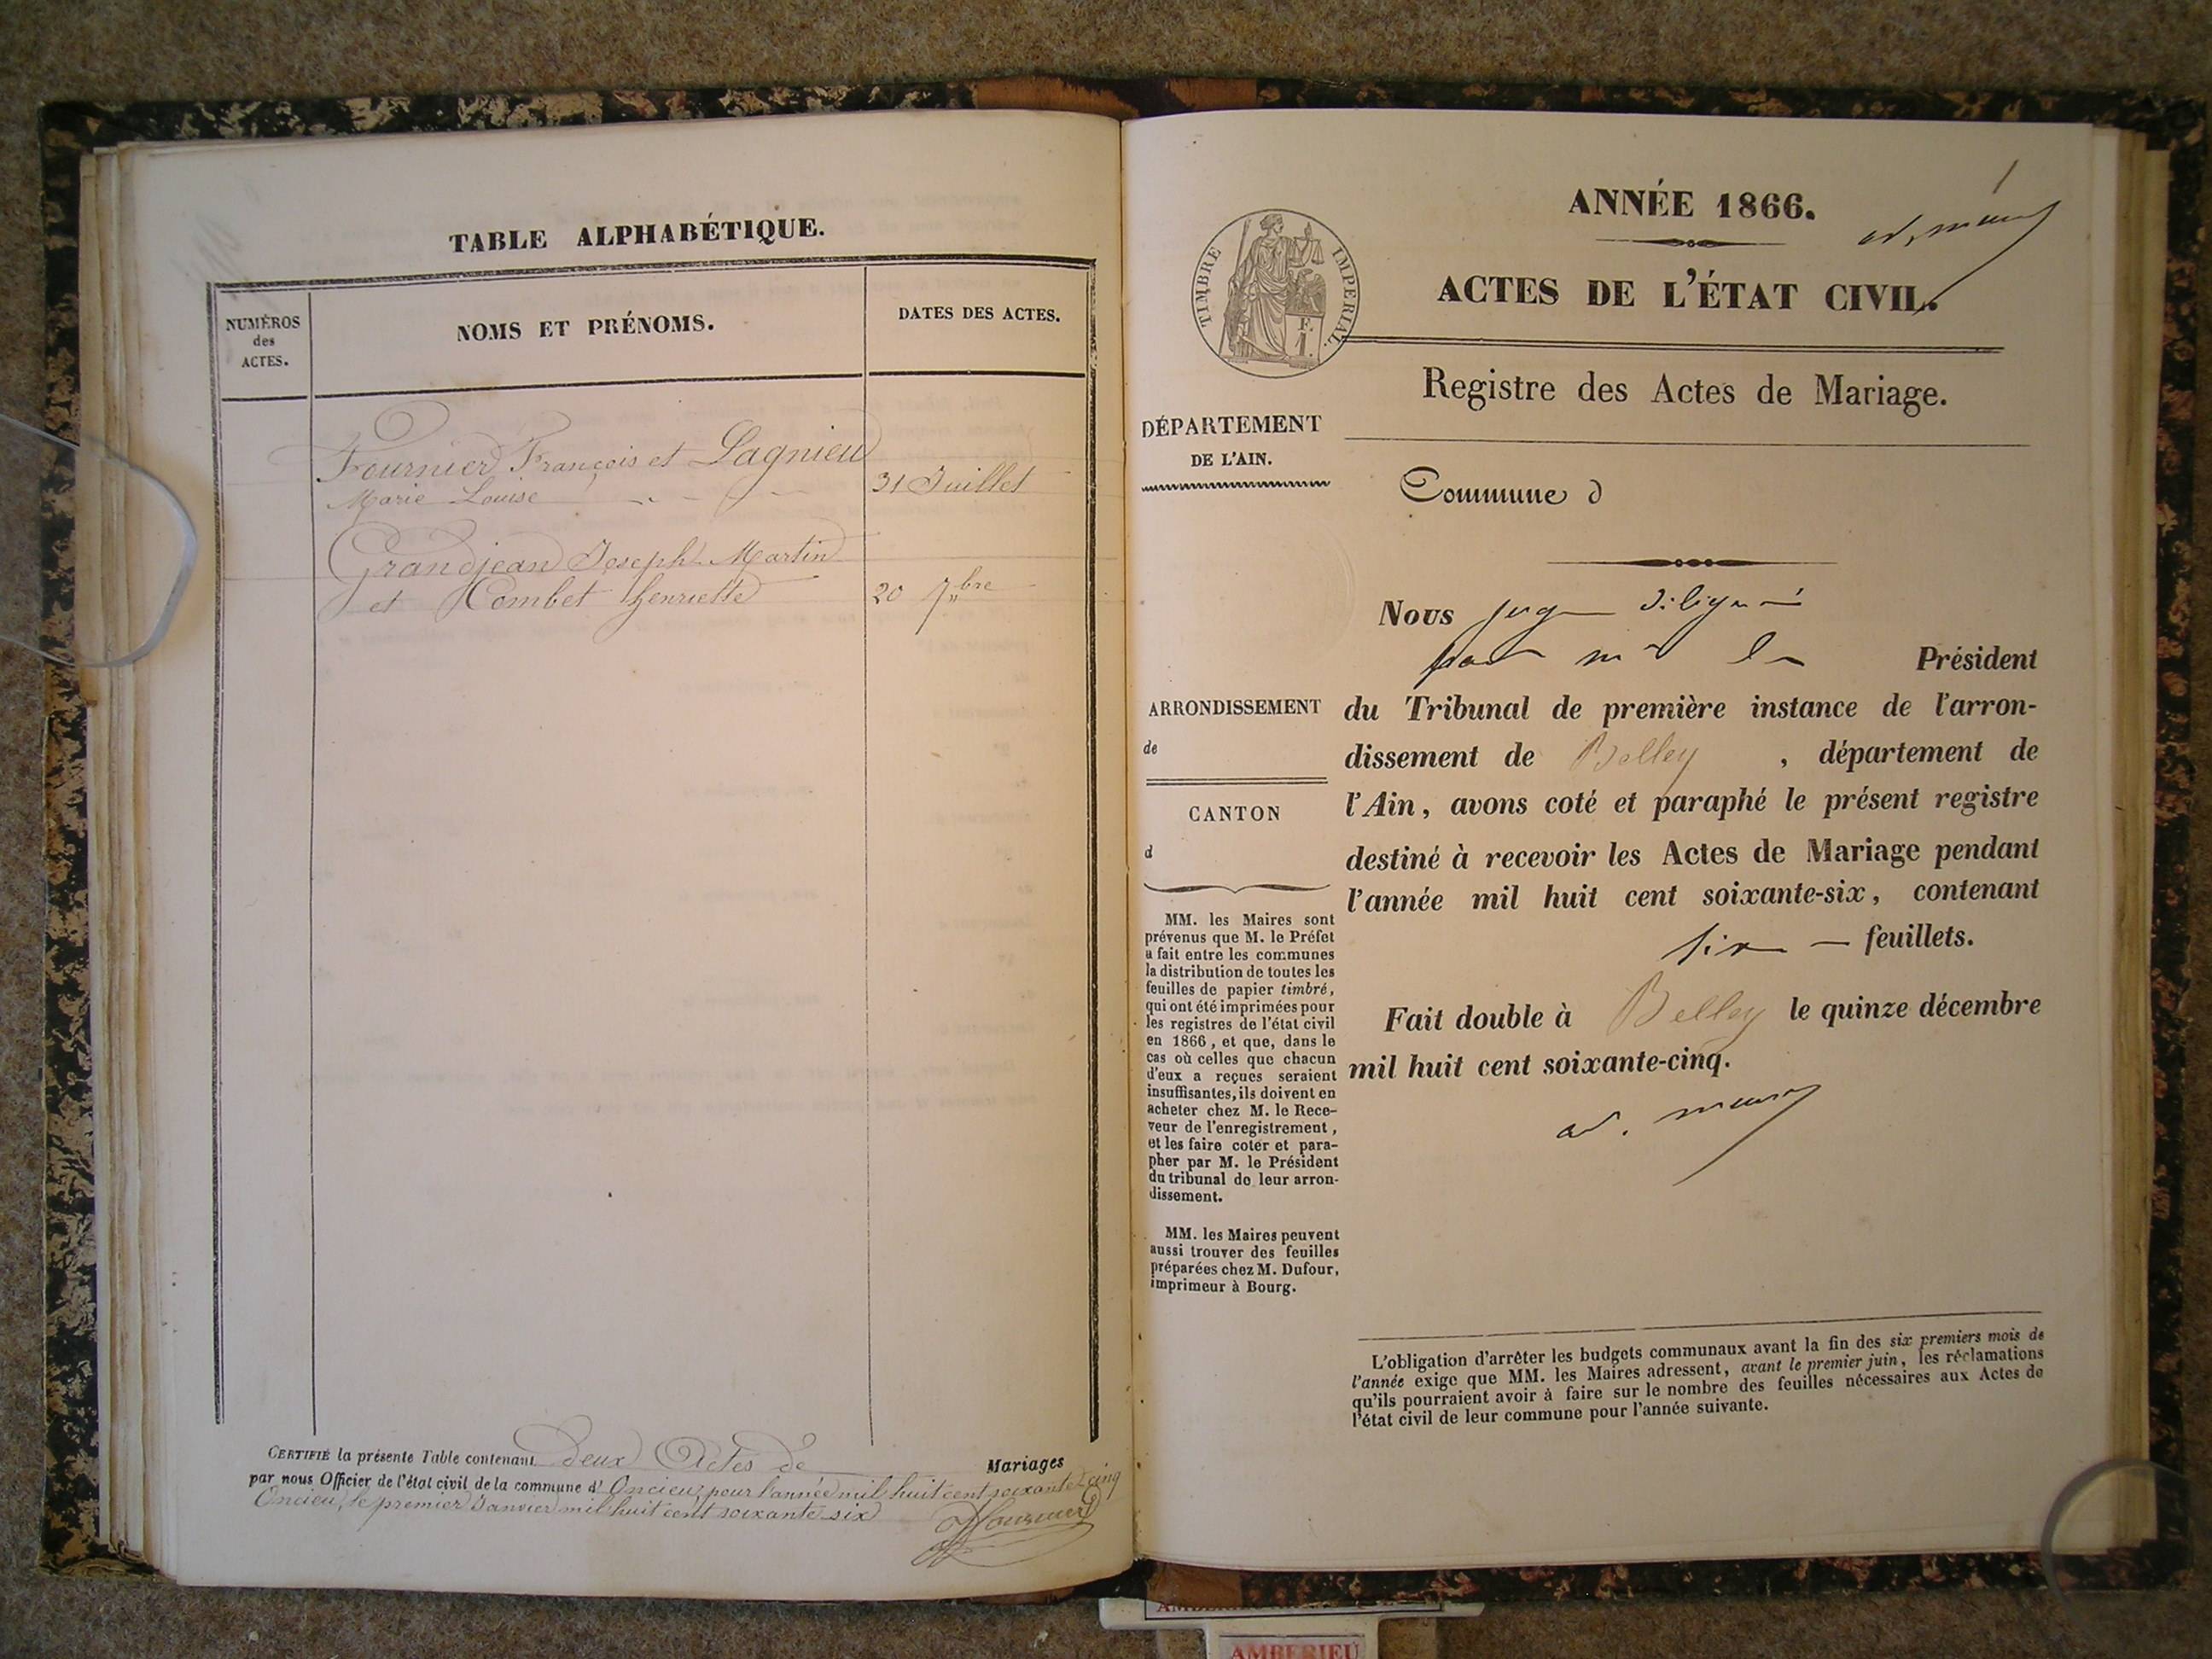 TABLE ALPHABÉTIQUE.
NUMÉROS
des
ACTES.
NOMS ET PRÉNOMS.
DATES DES ACTES.
Fournier François et Lagnieu
Marie Louise
31 Juillet
Grandjean Joseph Martin
et Combet henriette
20 7bre
CERTIFIÉ la présente Table contenant deux Actes de Mariages
par nous Officier de l'état civil de la commune d' Oncieu, pour l'année mil huit cent soixante cinq
Oncieu, le premier Janvier mil huit cent soixante six
ANNÉE 1866.
TIMBRE IMPÉRIAL.
F.
1.
ACTES DE L'ÉTAT CIVIL.
Registre des Actes de Mariage.
DÉPARTEMENT
DE L'AIN.
Commune d
Nous juge délégué
par mr le Président
ARRONDISSEMENT
de
du Tribunal de première instance de l'arron-
dissement de Belley , département de
CANTON
d
l'Ain, avons coté et paraphé le présent registre
destiné à recevoir les Actes de Mariage pendant
l'année mil huit cent soixante-six, contenant
six — feuillets.
Fait double à Belley le quinze décembre
mil huit cent soixante-cinq.
MM. les Maires sont
prévenus que M. le Préfet
a fait entre les communes
la distribution de toutes les
feuilles de papier timbré,
qui ont été imprimées pour
les registres de l'état civil
en 1866, et que, dans le
cas où celles que chacun
d'eux a reçues seraient
insuffisantes, ils doivent en
acheter chez M. le Rece-
veur de l'enregistrement,
et les faire coter et para-
pher par M. le Président
du tribunal de leur arron-
dissement.
MM. les Maires peuvent
aussi trouver des feuilles
préparées chez M. Dufour,
imprimeur à Bourg.
L'obligation d'arrêter les budgets communaux avant la fin des six premiers mois de
l'année exige que MM. les Maires adressent, avant le premier juin, les réclamations
qu'ils pourraient avoir à faire sur le nombre des feuilles nécessaires aux Actes de
l'état civil de leur commune pour l'année suivante.
AMBERIEU